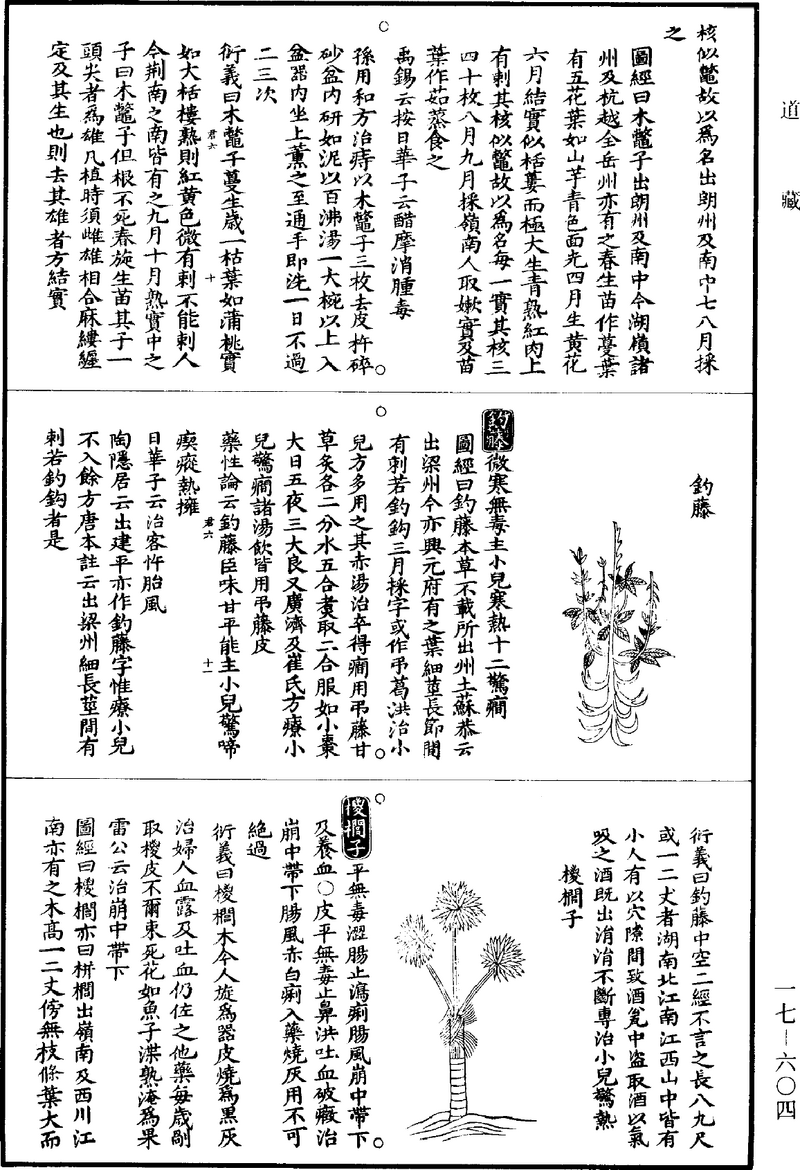 道藏
一七—六〇四
核似鼈故以爲名出朗州及南中七八月採
之
圖經曰木鼈子出朗州及南中今湖嶺諸
州及杭越全岳州亦有之春生苗作蔓葉
有五花葉如山芋青色面光四月生黄花
六月結實似栝蔞而極大生青熟紅肉上
有刺其核似鼈故以爲名每一實其核三
四十枚八月九月採嶺南人取嫩實及苗
葉作茹蒸食之
禹錫云按日華子云醋摩消腫毒
孫用和方治痔以木鼈子三枚去皮杵碎
砂盆内研如泥以百沸湯一大椀以上入
盆器内坐上薰之至通手即洗一日不過
二三次
衍義曰木鼈子蔓生歲一枯葉如蒲桃實
如大栝樓熟則紅黄色微有刺不能刺人
今荆南之南皆有之九月十月熟實中之
子曰木鼈子但根不死春旋生苗其子一
頭尖者爲雄凡植時須雌雄相合麻縷纒
定及其生也則去其雄者方結實
君六
十
釣藤
釣藤微寒無毒主小兒寒熱十二驚癇
圖經曰釣藤本草不載所出州土蘇恭云
出梁州今亦興元府有之葉細莖長節間
有刺若釣鈎三月採字或作弔葛洪治小
兒方多用之其赤湯治卒得癇用弔藤甘
草炙各二分水五合煑取二合服如小棗
大日五夜三大良又廣濟及崔氏方療小
兒驚癇諸湯飲皆用弔藤皮
藥性論云釣藤臣味甘平能主小兒驚啼
瘈瘲熱擁
君六
十一
日華子云治客忤胎風
陶隱居云出建平亦作釣藤字惟療小兒
不入餘方唐本註云出梁州細長莖間有
刺若釣鈎者是
衍義曰釣藤中空二經不言之長八九尺
或一二丈者湖南北江南江西山中皆有
小人有以穴隙間致酒瓮中盗取酒以氣
吸之酒既出涓涓不斷專治小兒驚熱
椶櫚子
椶櫚子平無毒澀腸止瀉痢腸風崩中帶下
及養血○皮平無毒止鼻洪吐血破癥治
崩中帶下腸風赤白痢入藥燒灰用不可
絶過
衍義曰椶櫚木今人旋爲器皮燒爲黒灰
治婦人血露及吐血仍佐之他藥每歲剮
取椶皮不爾束死花如魚子渫熟淹爲果
雷公云治崩中帶下
圖經曰椶櫚亦曰栟櫚出嶺南及西川江
南亦有之木高一二丈傍無枝條葉大而